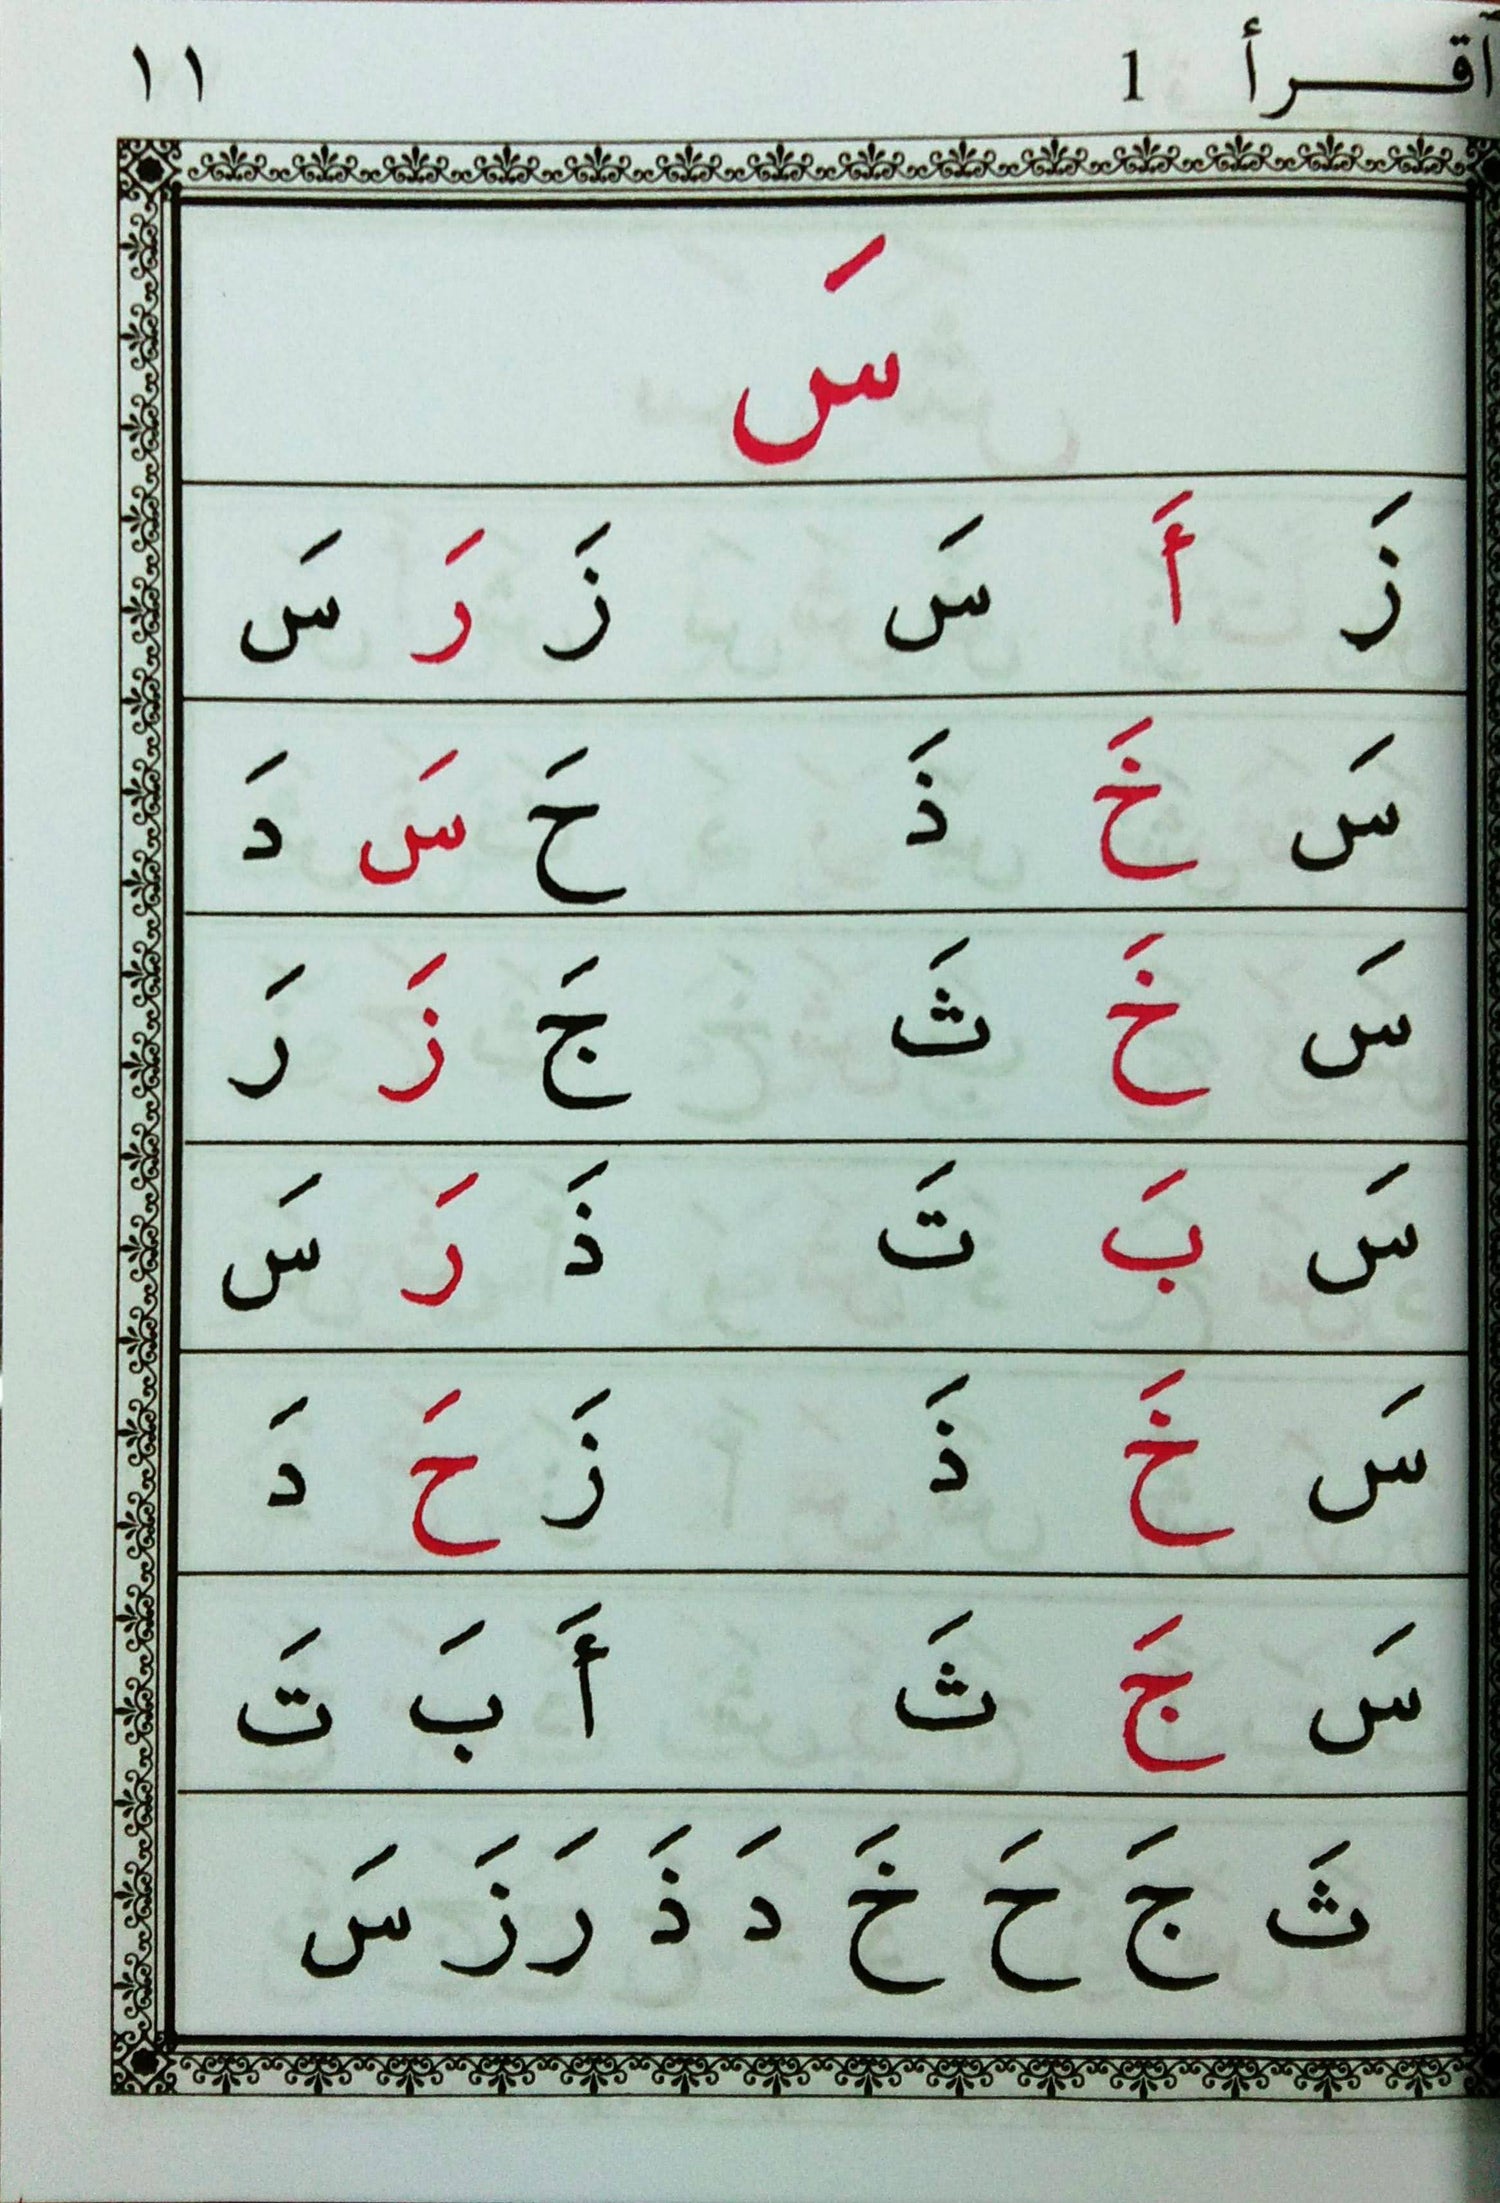 اقـــرأ 1 ١١
سَ
زَ أَ سَ زَ رَ سَ
سَ خَ ذَ حَ سَ دَ
سَ خَ ثَ جَ زَ رَ
سَ بَ تَ ذَ رَ سَ
سَ خَ ذَ زَ حَ دَ
سَ جَ ثَ أَ بَ تَ
ثَ جَ حَ خَ دَ ذَ رَ زَ سَ